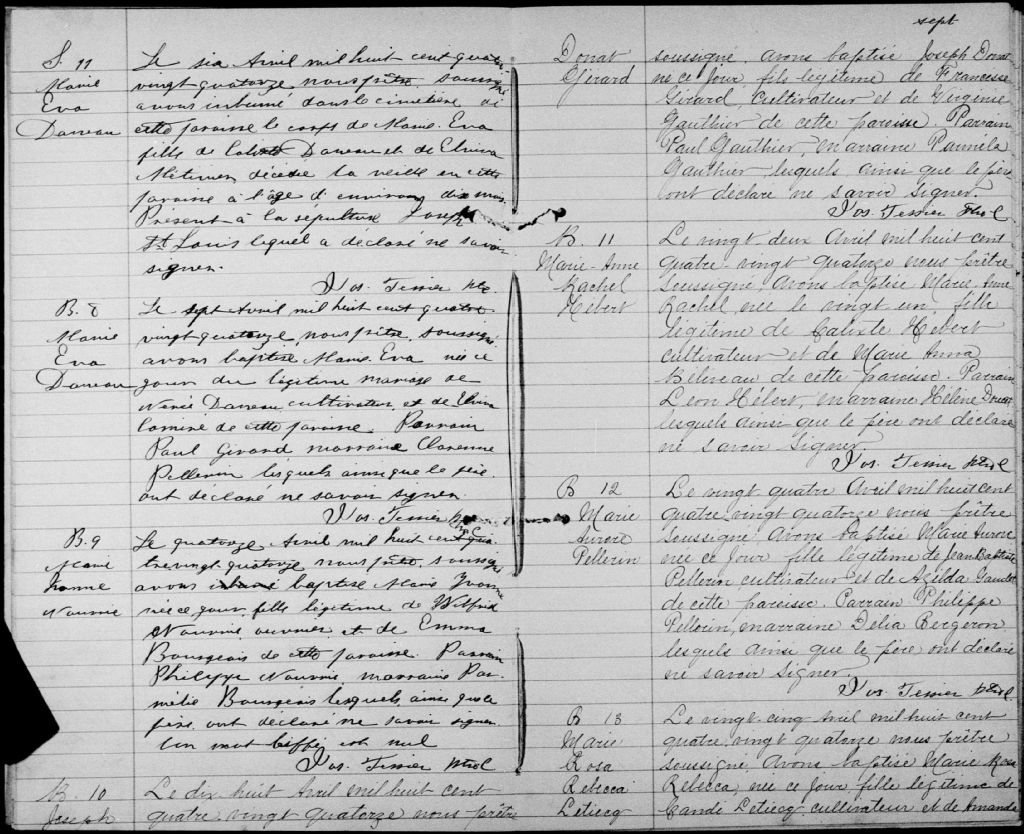 S. 11
Marie
Eva
Daneau
Le six Avril mil huit cent quatre
vingt quatorze nous prêtre soussigné
avons inhumé dans le cimetière de
cette paroisse le corps de Marie Eva
fille de Calixte Daneau et de Elvina
décédée la veille en cette
paroisse à l'âge d'environ dix mois
Présent à la sépulture Joseph
St. Louis lequel a déclaré ne savoir
signer.
Jos. Tessier Ptre
B. 8
Marie
Eva
Daneau
Le sept Avril mil huit cent quatre
vingt quatorze, nous prêtre, soussigné
avons baptisé Marie Eva née ce
jour du légitime mariage de
Nérée Daneau cultivateur et de Elvina
de cette paroisse Parrain
Paul Girard marraine
Pellerin lesquels ainsi que le père
ont déclaré ne savoir signer.
Jos. Tessier Ptre
B. 9
Marie
Yvonne
Nourrie
Le quatorze Avril mil huit cent qua
tre vingt quatorze, nous prêtre, soussigné
avons inhumé baptisé Marie Yvonne
née ce jour, fille légitime de Wilfrid
Nourrie ouvrier et de Emma
Bourgeois de cette paroisse. Parrain
Philippe Nourrie, marraine Pa-
mélie Bourgeois lesquels ainsi que le
père ont déclaré ne savoir signer
Un mot biffé est nul
Jos. Tessier Ptre
B. 10
Joseph
Le dix huit Avril mil huit cent
quatre vingt quatorze nous prêtre
sept
Donat
Girard
soussigné, avons baptisé Joseph Donat
né ce jour, fils légitime de
Girard, cultivateur et de Virginie
Gauthier de cette paroisse. Parrain
Paul Gauthier, marraine Paméla
Gauthier, lesquels ainsi que le père
ont déclaré ne savoir signer.
Jos. Tessier Ptre
B. 11
Marie-Anne
Rachel
Hébert
Le vingt-deux Avril mil huit cent
quatre-vingt quatorze nous prêtre
soussigné avons baptisé Marie Anne
Rachel née le vingt-un, fille
légitime de Calixte Hébert
cultivateur et de Marie Anna
Béliveau de cette paroisse. Parrain
Léon Hébert, marraine Hélène Doucet
lesquels ainsi que le père ont déclaré
ne savoir signer
Jos. Tessier Ptre
B 12
Marie
Aurore
Pellerin
Le vingt quatre Avril mil huit cent
quatre vingt quatorze nous prêtre
soussigné avons baptisé Marie Aurore
née ce jour fille légitime de Jean Baptiste
Pellerin cultivateur et de Azilda Gaudet
de cette paroisse. Parrain Philippe
Pellerin, marraine Délia Bergeron
lesquels ainsi que le père ont déclaré
ne savoir signer.
Jos. Tessier Ptre
B 13
Marie
Rosa
Rébecca
Leticq
Le vingt-cinq Avril mil huit cent
quatre vingt quatorze nous prêtre
soussigné avons baptisé Marie Rosa
Rébecca, née ce jour, fille légitime de
cultivateur et de Amanda